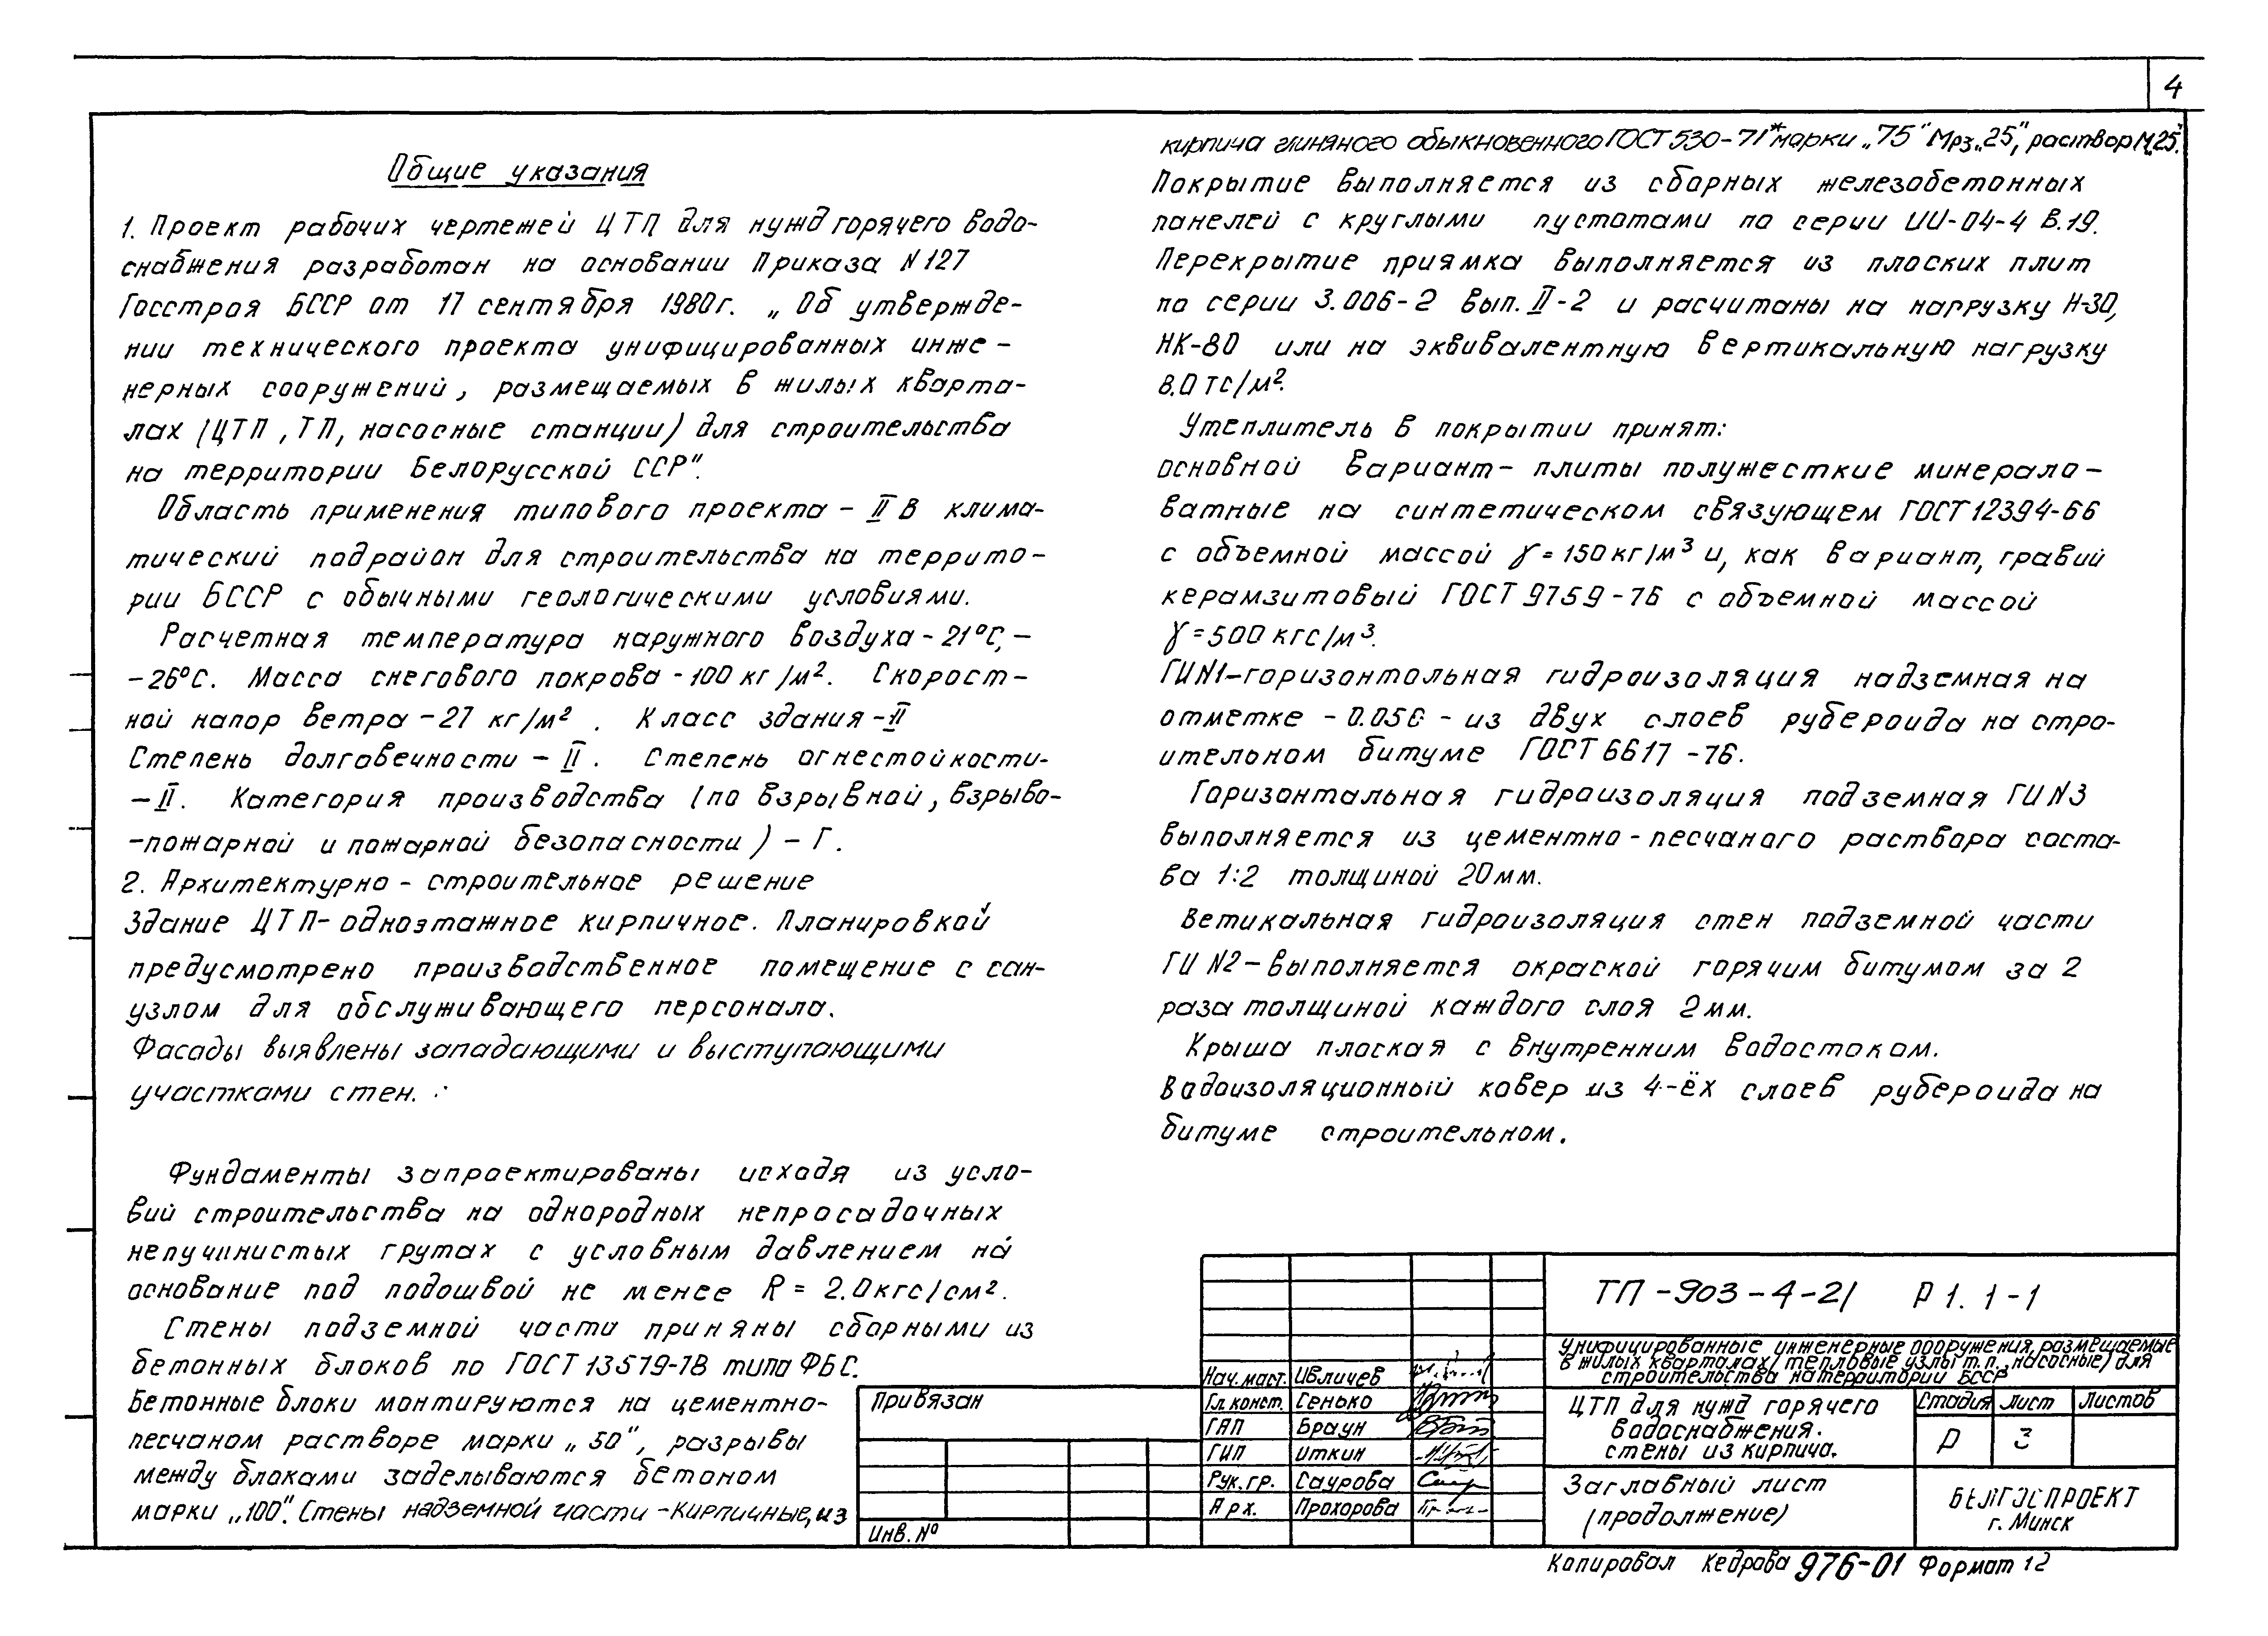 4
Общие указания
1. Проект рабочих чертежей ЦТП для нужд горячего водо-
снабжения разработан на основании Приказа N 127
Госстроя БССР от 17 сентября 1980г. „Об утвержде-
нии технического проекта унифицированных инже-
нерных сооружений, размещаемых в жилых кварта-
лах (ЦТП, ТП, насосные станции) для строительства
на территории Белорусской ССР".
Область применения типового проекта – II В клима-
тический подрайон для строительства на террито-
рии БССР с обычными геологическими условиями.
Расчетная температура наружного воздуха - 21°С, –
-26°С. Масса снегового покрова - 100 кг/м². Скорост-
ной напор ветра – 27 кг/м². Класс здания – II
Степень долговечности – II. Степень огнестойкости-
– II. Категория производства (по взрывной, взрыво-
-пожарной и пожарной безопасности) – Г.
2. Архитектурно - строительное решение
Здание ЦТП - одноэтажное кирпичное. Планировкой
предусмотрено производственное помещение с сан-
узлом для обслуживающего персонала.
Фасады выявлены западающими и выступающими
участками стен.
Фундаменты запроектированы исходя из усло-
вий строительства на однородных непросадочных
непучинистых грутах с условным давлением на
основание под подошвой не менее R = 2.0кгс/см².
Стены подземной части приняны сборными из
бетонных блоков по ГОСТ 13579-78 типа ФБС.
Бетонные блоки монтируются на цементно-
песчаном растворе марки „50", разрывы
между блоками заделываются бетоном
марки „100". Стены надземной части - кирпичные, из
кирпича глиняного обыкновенного ГОСТ 530-71* марки „75" Мрз „25", раствор М„25".
Покрытие выполняется из сборных железобетонных
панелей с круглыми пустотами по серии ИИ-04-4 В.19.
Перекрытие приямка выполняется из плоских плит
по серии 3.006-2 вып. II-2 и расчитаны на нагрузку Н-30,
НК-80 или на эквивалентную вертикальную нагрузку
8.0 тс/м².
Утеплитель в покрытии принят:
основной вариант - плиты полужесткие минерало-
ватные на синтетическом связующем ГОСТ 12394-66
с объемной массой γ = 150 кг/м³ и, как вариант, гравий
керамзитовый ГОСТ 9759-76 с объемной массой
γ = 500 кгс/м³.
ГИ N1 - горизонтольная гидроизоляция надземная на
отметке - 0.050 - из двух слоев рубероида на стро-
ительном битуме ГОСТ 6617-76.
Горизонтальная гидроизоляция подземная ГИ N3
выполняется из цементно - песчаного раствора соста-
ва 1:2 толщиной 20мм.
Ветикальная гидроизоляция стен подземной части
ГИ N2 – выполняется окраской горячим битумом за 2
раза толщиной каждого слоя 2мм.
Крыша плоская с внутренним водостоком.
Водоизоляционный ковер из 4-ёх слоев рубероида на
битуме строительном.
ТП -903-4-21 Р 1. 1-1
Унифицированные инженерные сооружения, размещаемые
в жилых кварталах (тепловые узлы т.п., насосные) для
строительства на территории БССР
Нач. маст. Ивличев
Гл. конст. Сенько
ГАП Браун
ГИП Иткин
Рук. гр. Саурова
Арх. Прохорова
Привязан
Инв. №
ЦТП для нужд горячего
водоснабжения.
стены из кирпича.
Стадия Лист Листов
Р 3
Заглавный лист
(продолжение)
БЕЛГОСПРОЕКТ
г. Минск
Копировал Кедрова 976-01 Формат 12